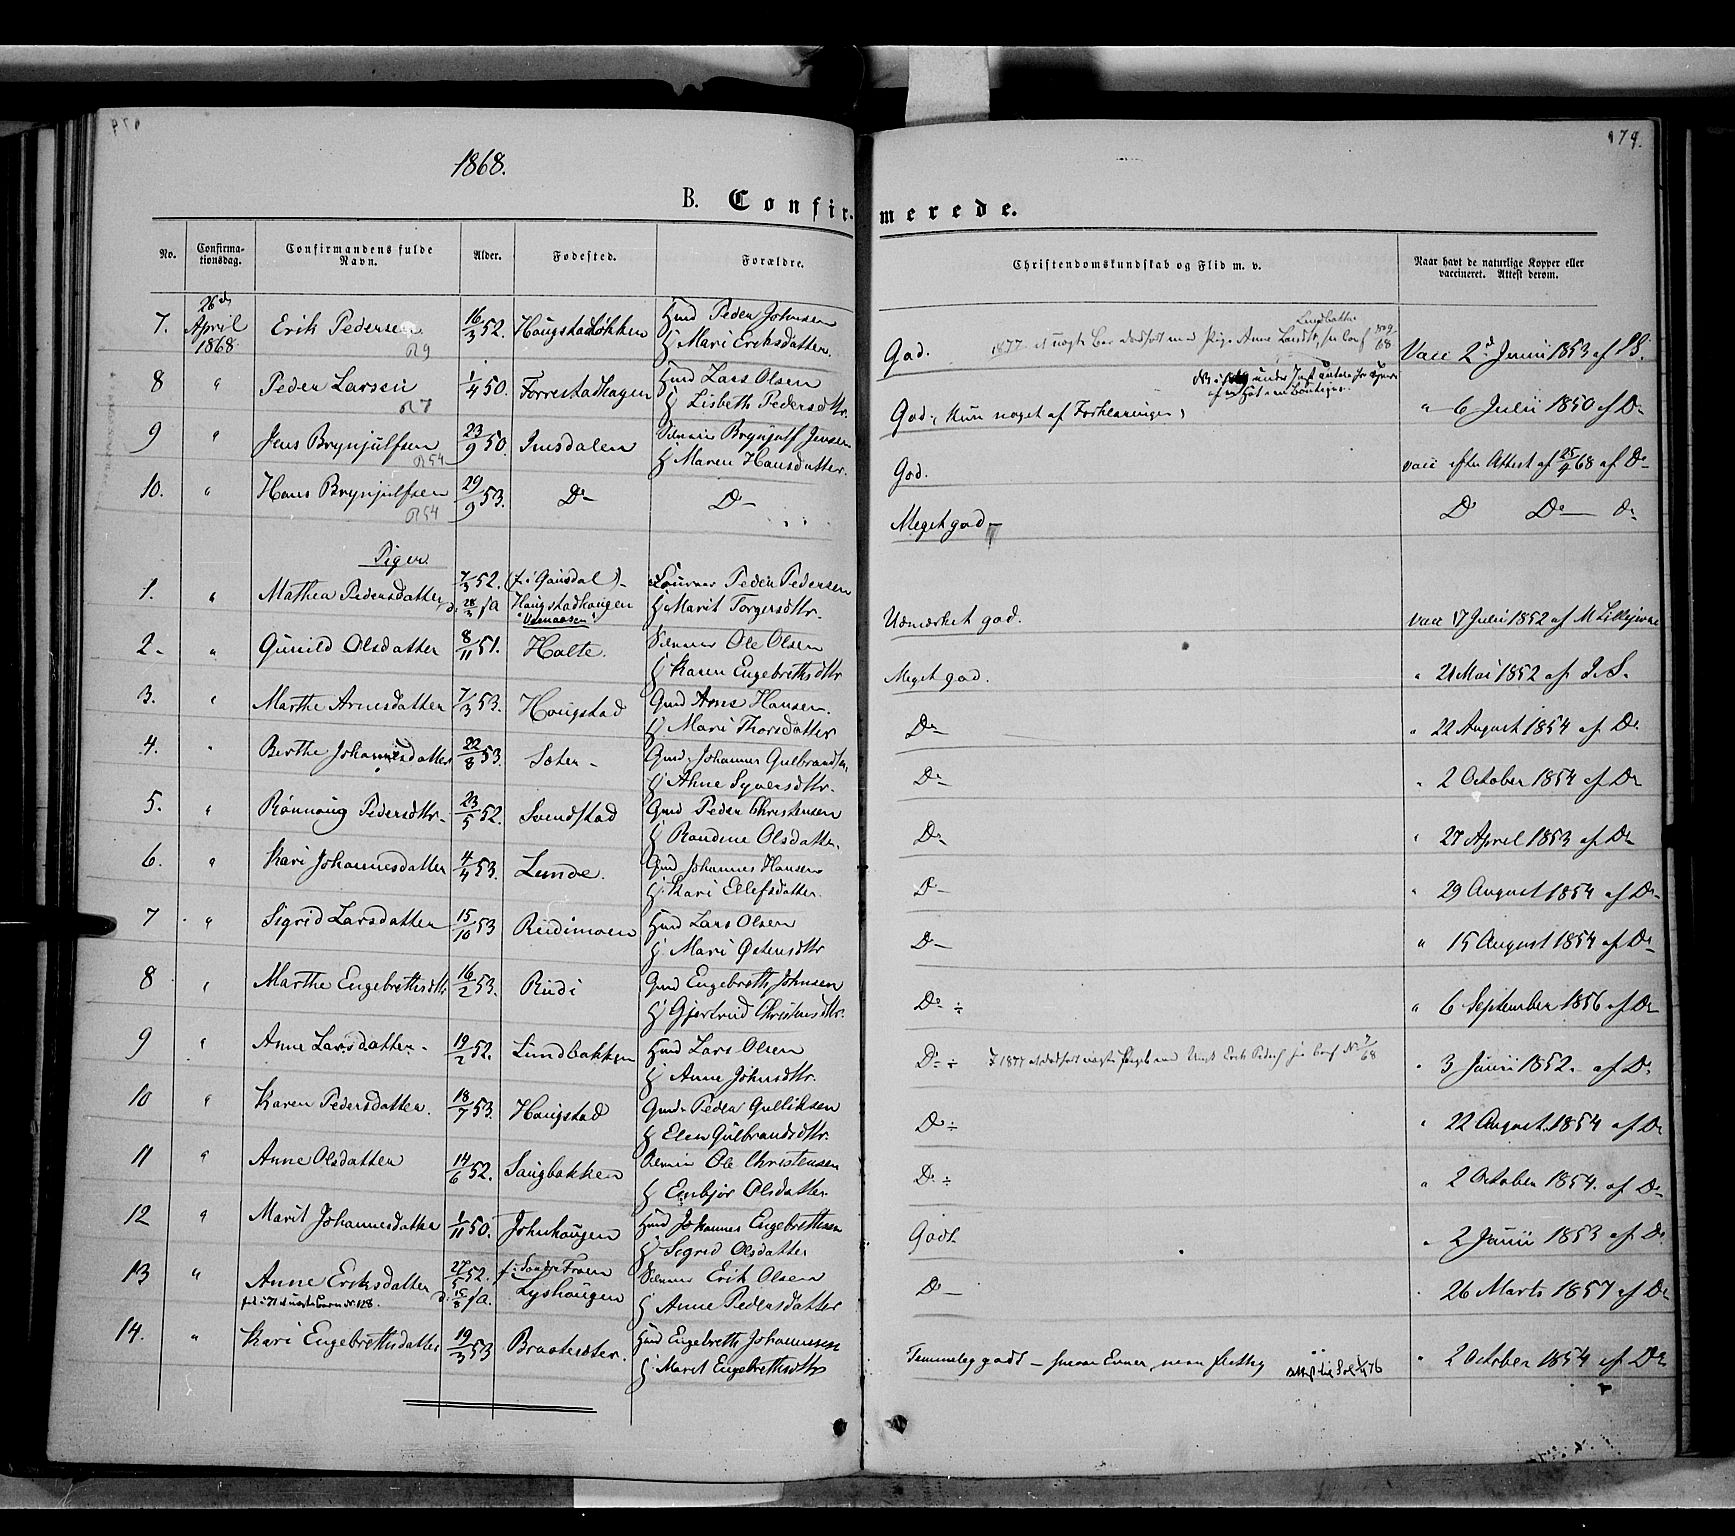 174.
1868.
B. Confirmerede.
No. Confirmationsdag. Confirmandens fulde Navn. Alder. Fødested. Forældre. Christendomskundskab og Flid m. v. Naar havt de naturlige Kopper eller vaccineret. Attest derom.
7. 26de April 1868 Erik Pedersen 16/3 52. Haugstadløkken Huusmd Peder Johnsen
Mari Eriksdatter. God. Vacc 2d Junii 1853 af
8 " Peder Larsen 1/4 50. Forrestadhagen Lars Olsen
R 7 Lisbeth Pedersdttr. God, kun noget af Forklaringen " 6 Julii 1850 af Do
9 " Jens Brynjulfsen 23/9 50. Brynjulf Jensen
R 54 Maren Hansdatter. God. vacc efter Attest af 25/4 68 af Do
10. " Hans Brynjulfsen 29/9 53. Do Do
R 54 Meget god Do Do Do
Piger
1. " Mathea Pedersdatter 7/3 52. (f. i Gausdal) Peder Pedersen
Haugstadhaugen Marit Torgersdttr. Udmærket god. vacc 17 Julii 1852 af M
2. " Gunild Olsdatter 8/11 51. Holte. Ole Olsen
Karen Engebrethsdttr Meget god. " 21 Mai 1852 af
3. " Marthe Arnesdatter 7/3 53. Haugstad Gmd Arne Hansen.
Mari Thorsdatter Do " 22 August 1854 af Do
4. " Berthe Johannesdatter 22/8 53. Sæter Gmd Johannes Gulbrandsen
Anne Syversdttr. Do " 2 October 1854 af Do
5. " Rønnaug Pedersdttr. 23/5 52. Svendstad Gmd Peder Christensen
Randine Olsdatter. Do " 27 April 1853 af Do
6. " Kari Johannesdatter 4/4 53. Lunde. Gmd Johannes Hansen
Kari Ellefsdatter. Do " 29 August 1854 af Do
7 " Sigrid Larsdatter 15/10 53 Rudimoen Lars Olsen
Mari Østensdttr Do " 15 August 1854 af Do
8 " Marthe Engebrethsdttr 16/2 53. Rudi Gmd Engebreth Johnsen
Gjertrud Christensdttr. Do ÷ " 6 September 1856 af Do
9 " Anne Larsdatter 19/2 52. Lundbakken Lars Olsen
Anne Johnsdttr. Do ÷ " 3 Junii 1852. af Do
10 " Karen Pedersdatter. 18/7 53. Haugstad Gmd Peder Gulliksen
Elen Gulbrandsdttr. Do ÷ " 22 August 1854 af Do
11 " Anne Olsdatter 14/6 52. Haugbakken Ole Christensen
Embjør Olsdatter Do ÷ " 2 October 1854. af Do
12 " Marit Johannesdatter 1/11 50. Johnhaugen Johannes Engebrethsen
Sigrid Olsdatter Godt " 2 Junii 1853 af Do
13 " Anne Eriksdatter 27/5 52. f. i Søndre Froen Erik Olsen
Lyshaugen Anne Pedersdatter Do " 26 Marts 1857 af Do
14. " Kari Engebrethsdatter 19/3 53 Braatesæter. Engebreth Johannessen
Marit Engebrethsdttr Temmelig godt – smaae Evner, men flittig " 2 October 1854 af Do